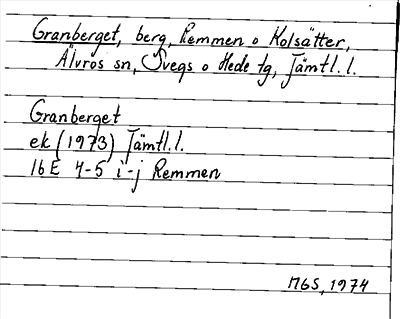 Granberget, berg, Remmen o Kolsätter,
Älvros sn, Svegs o Hede tg, Jämtl. l.
Granberget
ek (1973) Jämtl. l.
16E 4-5 i-j Remmen
MGS, 1974